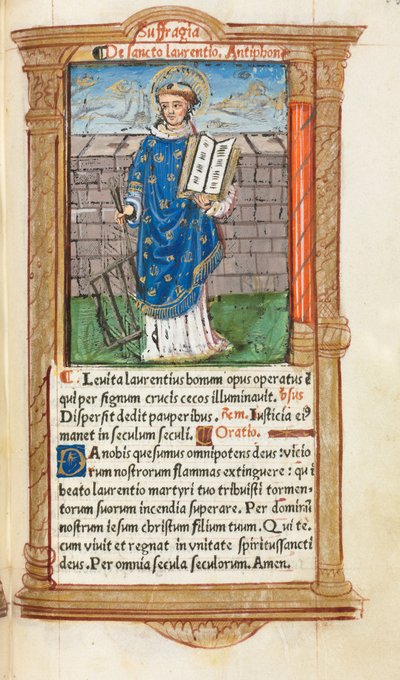 Suffragia
De sancto laurentio. Antiphona
Levita laurentius bonum opus operatus ē
qui per signum crucis cecos illuminauit. ꝟsus
Dispersit dedit pauperibus. ℞m. Iusticia eiꝰ
manet in seculum seculi. Oratio.
DA nobis quesumus omnipotens deus: vicio
rum nostrorum flammas extinguere: qui
beato laurentio martyri tuo tribuisti tormen-
torum suorum incendia superare. Per dominū
nostrum iesum christum filium tuum. Qui te-
cum viuit et regnat in vnitate spiritussancti
deus. Per omnia secula seculorum. Amen.